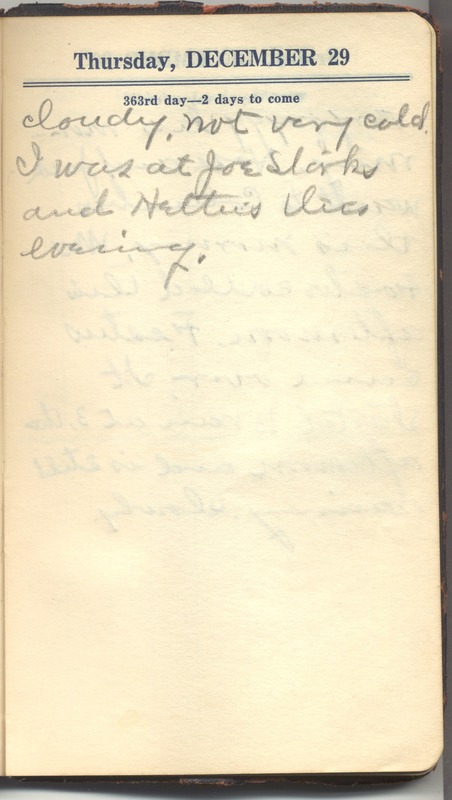 Thursday, DECEMBER 29
363rd day—2 days to come
cloudy, not very cold.
I was at Joe Storks
and Netties this
evening.